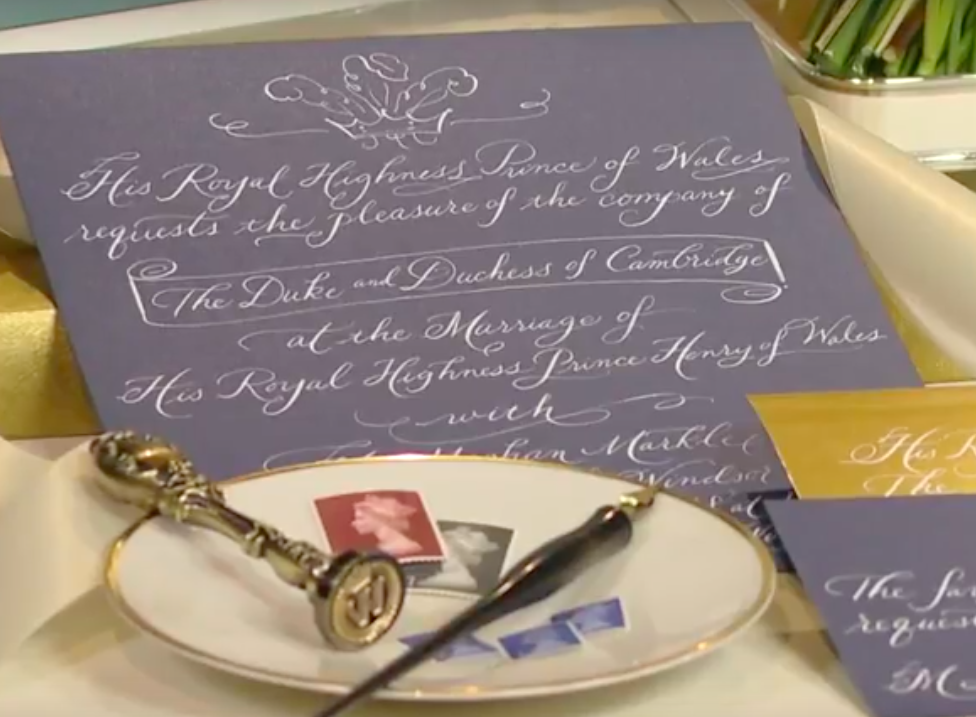 His Royal Highness Prince of Wales
requests the pleasure of the company of
The Duke and Duchess of Cambridge
at the Marriage of
His Royal Highness Prince Henry of Wales
with
Markle
Windsor
at
His R
The
The